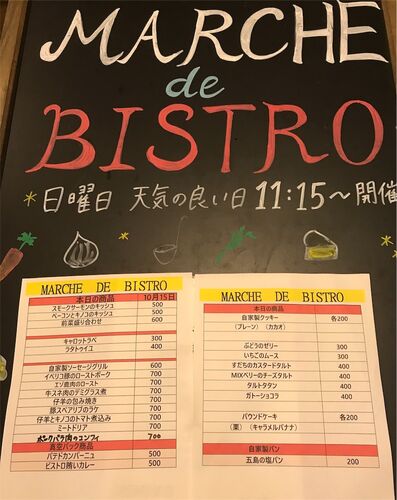 MARCHE
de
BISTRO
日曜日 天気の良い日 11:15～開催
MARCHE DE BISTRO
本日の商品 10月15日
スモークサーモンのキッシュ 500
ベーコンとキノコのキッシュ 500
前菜盛り合わせ 600
キャロットラペ 300
ラタトゥイユ 400
自家製ソーセージグリル 600
イベリコ豚のローストポーク 700
エゾ鹿肉のロースト 700
牛スネ肉のデミグラス煮 700
仔羊の包み焼き 700
豚スペアリブのラケ 700
仔羊とキノコのトマト煮込み 700
ミートドリア 700
ホンクバラ肉のコンフィ 700
真空パック商品
パテドカンパーニュ 500
ビストロ賄いカレー 500
MARCHE DE BISTRO
本日の商品
自家製クッキー 各200
（プレーン）（カカオ）
ぶどうのゼリー 300
いちごのムース 300
すだちのカスタードタルト 400
MIXベリーのチーズタルト 400
タルトタタン 400
ガトーショコラ 400
パウンドケーキ 各200
（栗）（キャラメルバナナ）
自家製パン
五島の塩パン 200